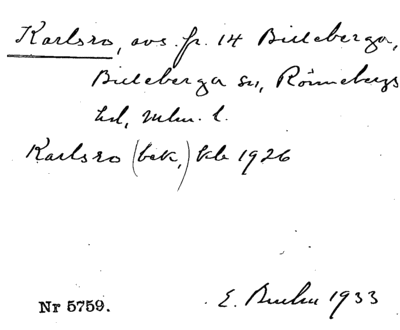 Karlsro, avs. fr. 14 Billeberga,
Billeberga sn, Rönnebergs
hd, Mlm. l.
Karlsro (bek.) kb 1926
Nr 5759. E. 1933